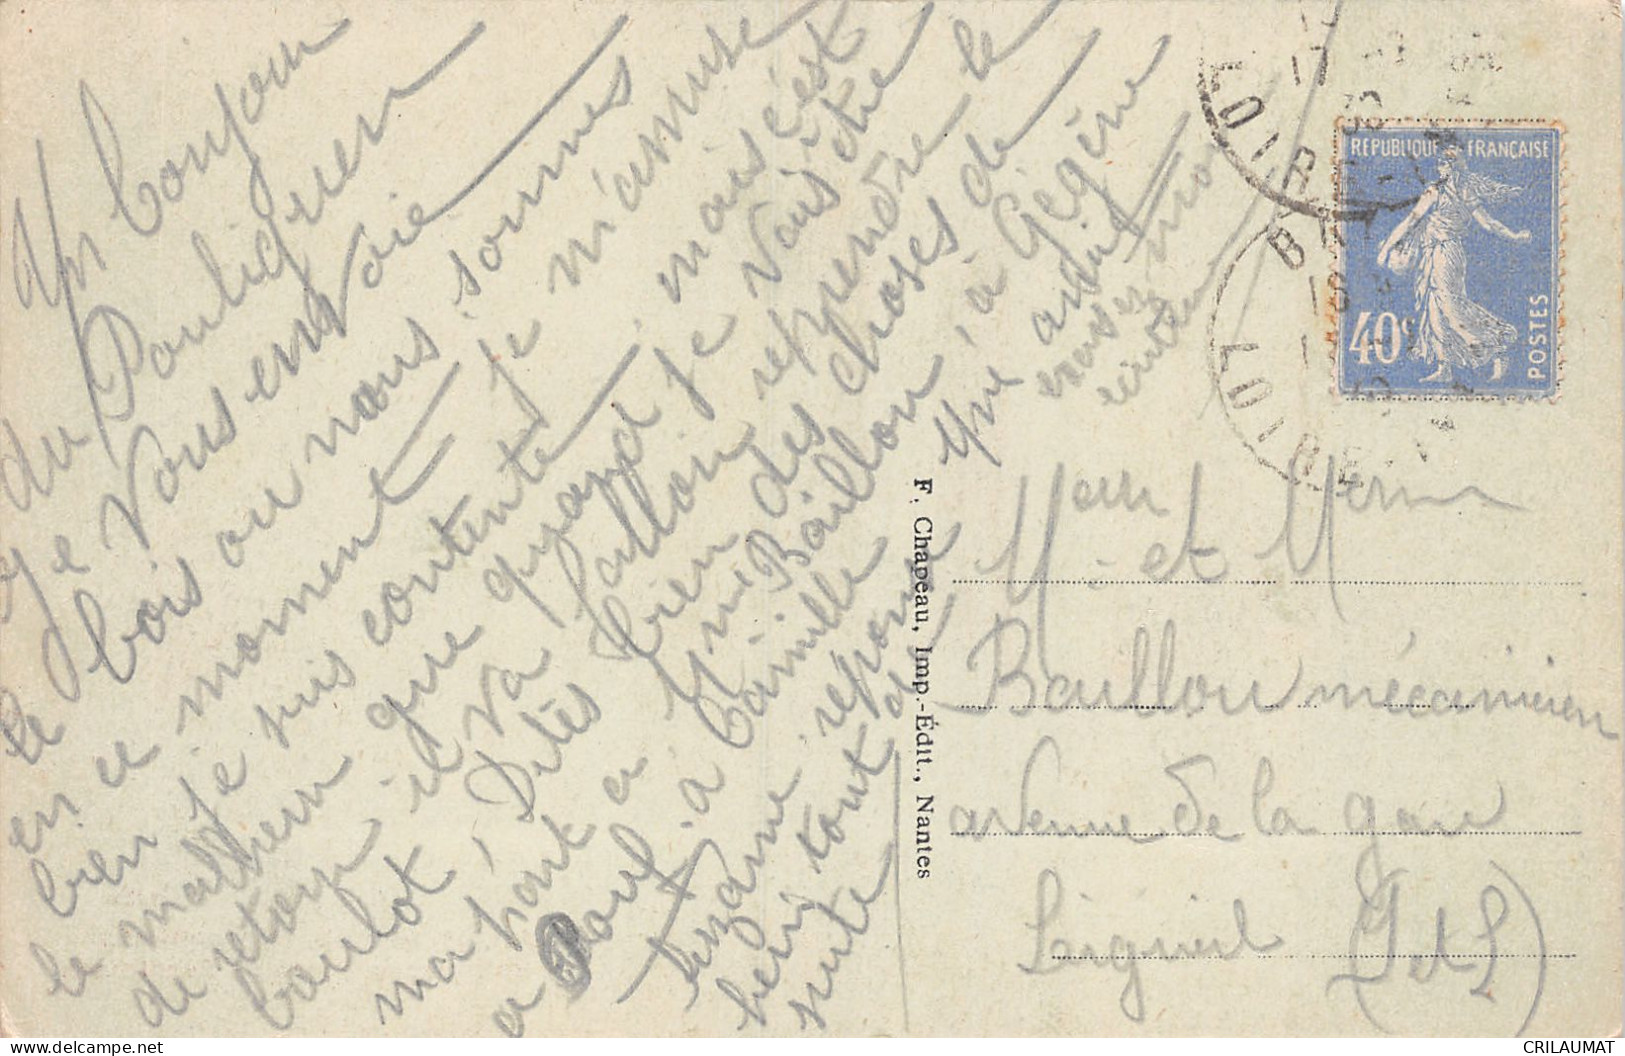 Un bonjour
du Pouliguen
Je vous envoie
le bois ou nous sommes
en ce moment je m'amuse
bien je suis contente mais c'est
le malheur que quand je vais être
de retour il va falloir reprendre le
boulot, Dites bien des choses de
ma part a Mme Baillon, à Gégène
a Paul, à Camille
Suzanne réponse
tout de
suite
F. Chapeau, Imp.-Édit., Nantes
REPUBLIQUE FRANÇAISE
40c
POSTES
LOIRE
LOIRE
M. et Mem
Baillou mécanicien
avenue de la gare
Ligueil (I et L)
CRILAUMAT